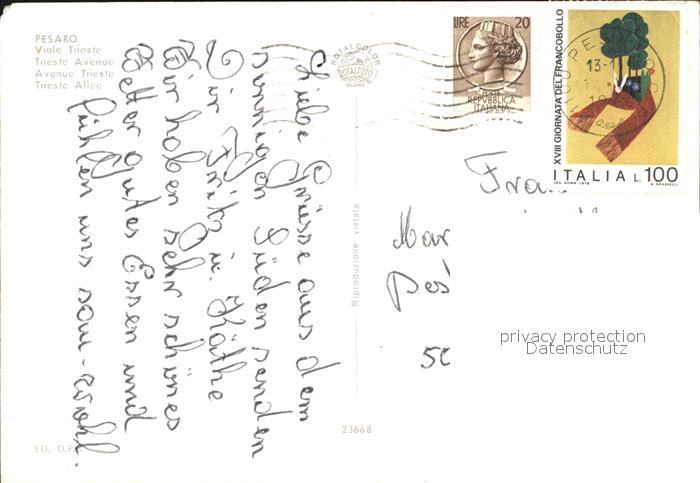 PESARO
Viale Trieste
Trieste Avenue
Avenue Trieste
Trieste Allee
Liebe Grüsse aus dem
sonnigen Süden senden
Dir Fritz u. Käthe
Wir haben sehr schönes
Wetter gutes Essen und
fühlen uns sau-wohl.
ED. D.P.
Riproduzione vietata
23668
ROTALCOLOR
ROTALFOTO
LIRE 20
REPVBBLICA
ITALIANA
XVIII GIORNATA DEL FRANCOBOLLO
13-1
ITALIA L.100
I.P.S.-ROMA-1976
Fra
Mar
50
privacy protection
Datenschutz